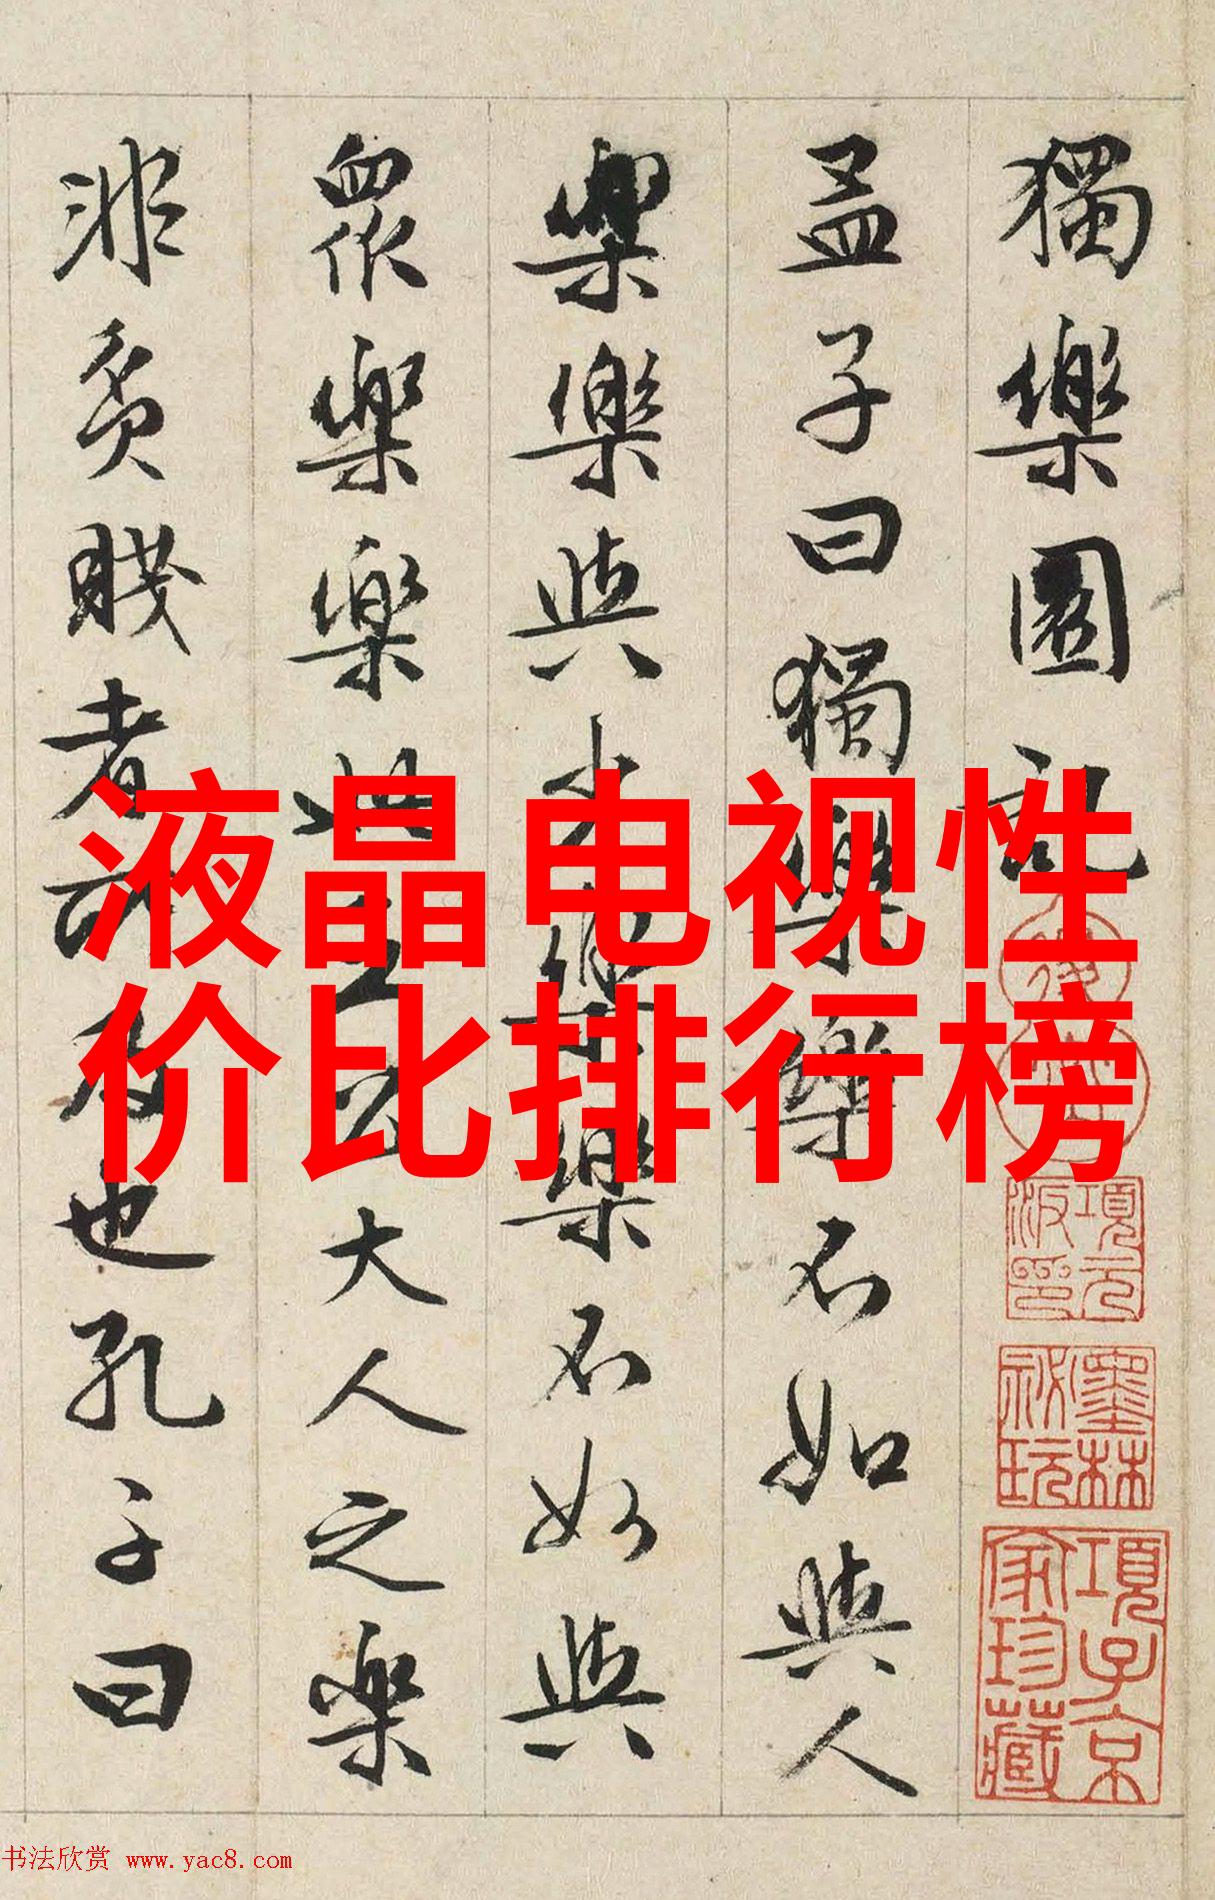 獨樂園記
孟子曰獨樂樂不如與人
樂樂與少樂樂不如與
眾樂樂此王公大人之樂
非貧賤者所及也孔子曰
液晶电视性
价比排行榜
項元汴印
墨林秘玩
項子京家珍藏
书法欣赏 www.yac8.com